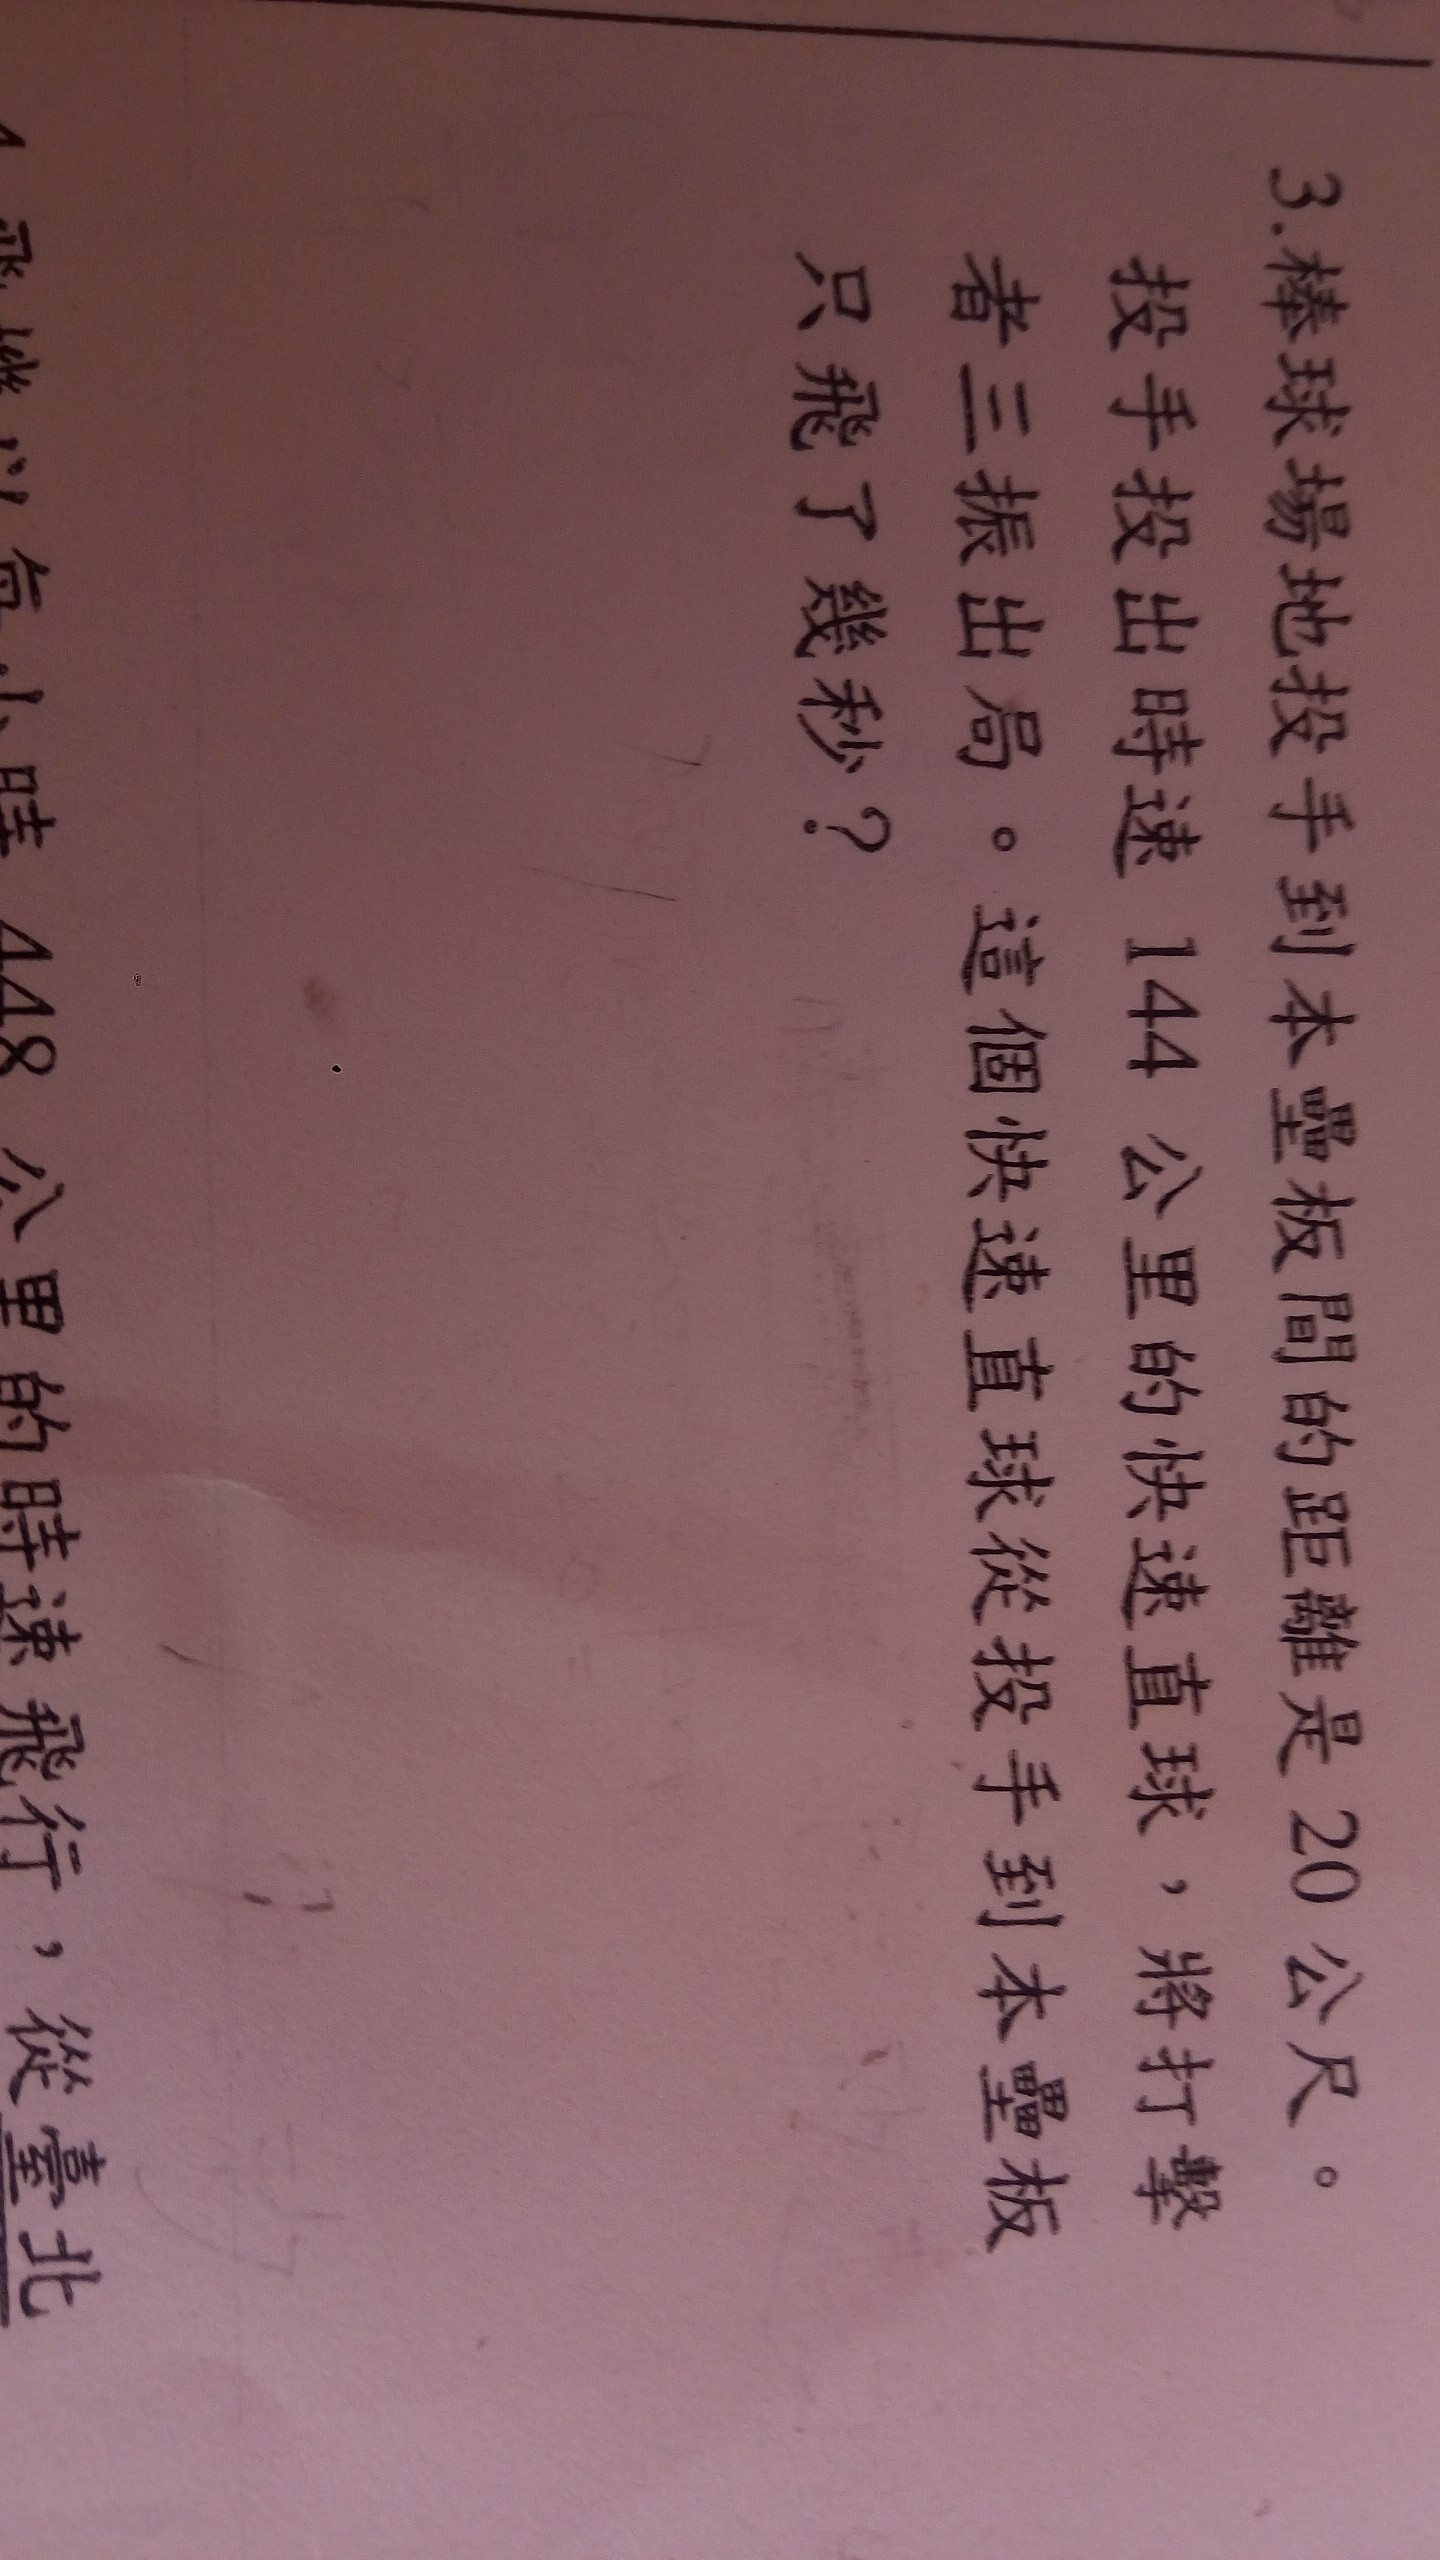 3.棒球場地投手到本壘板間的距離是 20 公尺。
投手投出時速 144 公里的快速直球，將打擊
者三振出局。這個快速直球從投手到本壘板
只飛了幾秒？
飛機以每小時 448 公里的時速飛行，從臺北